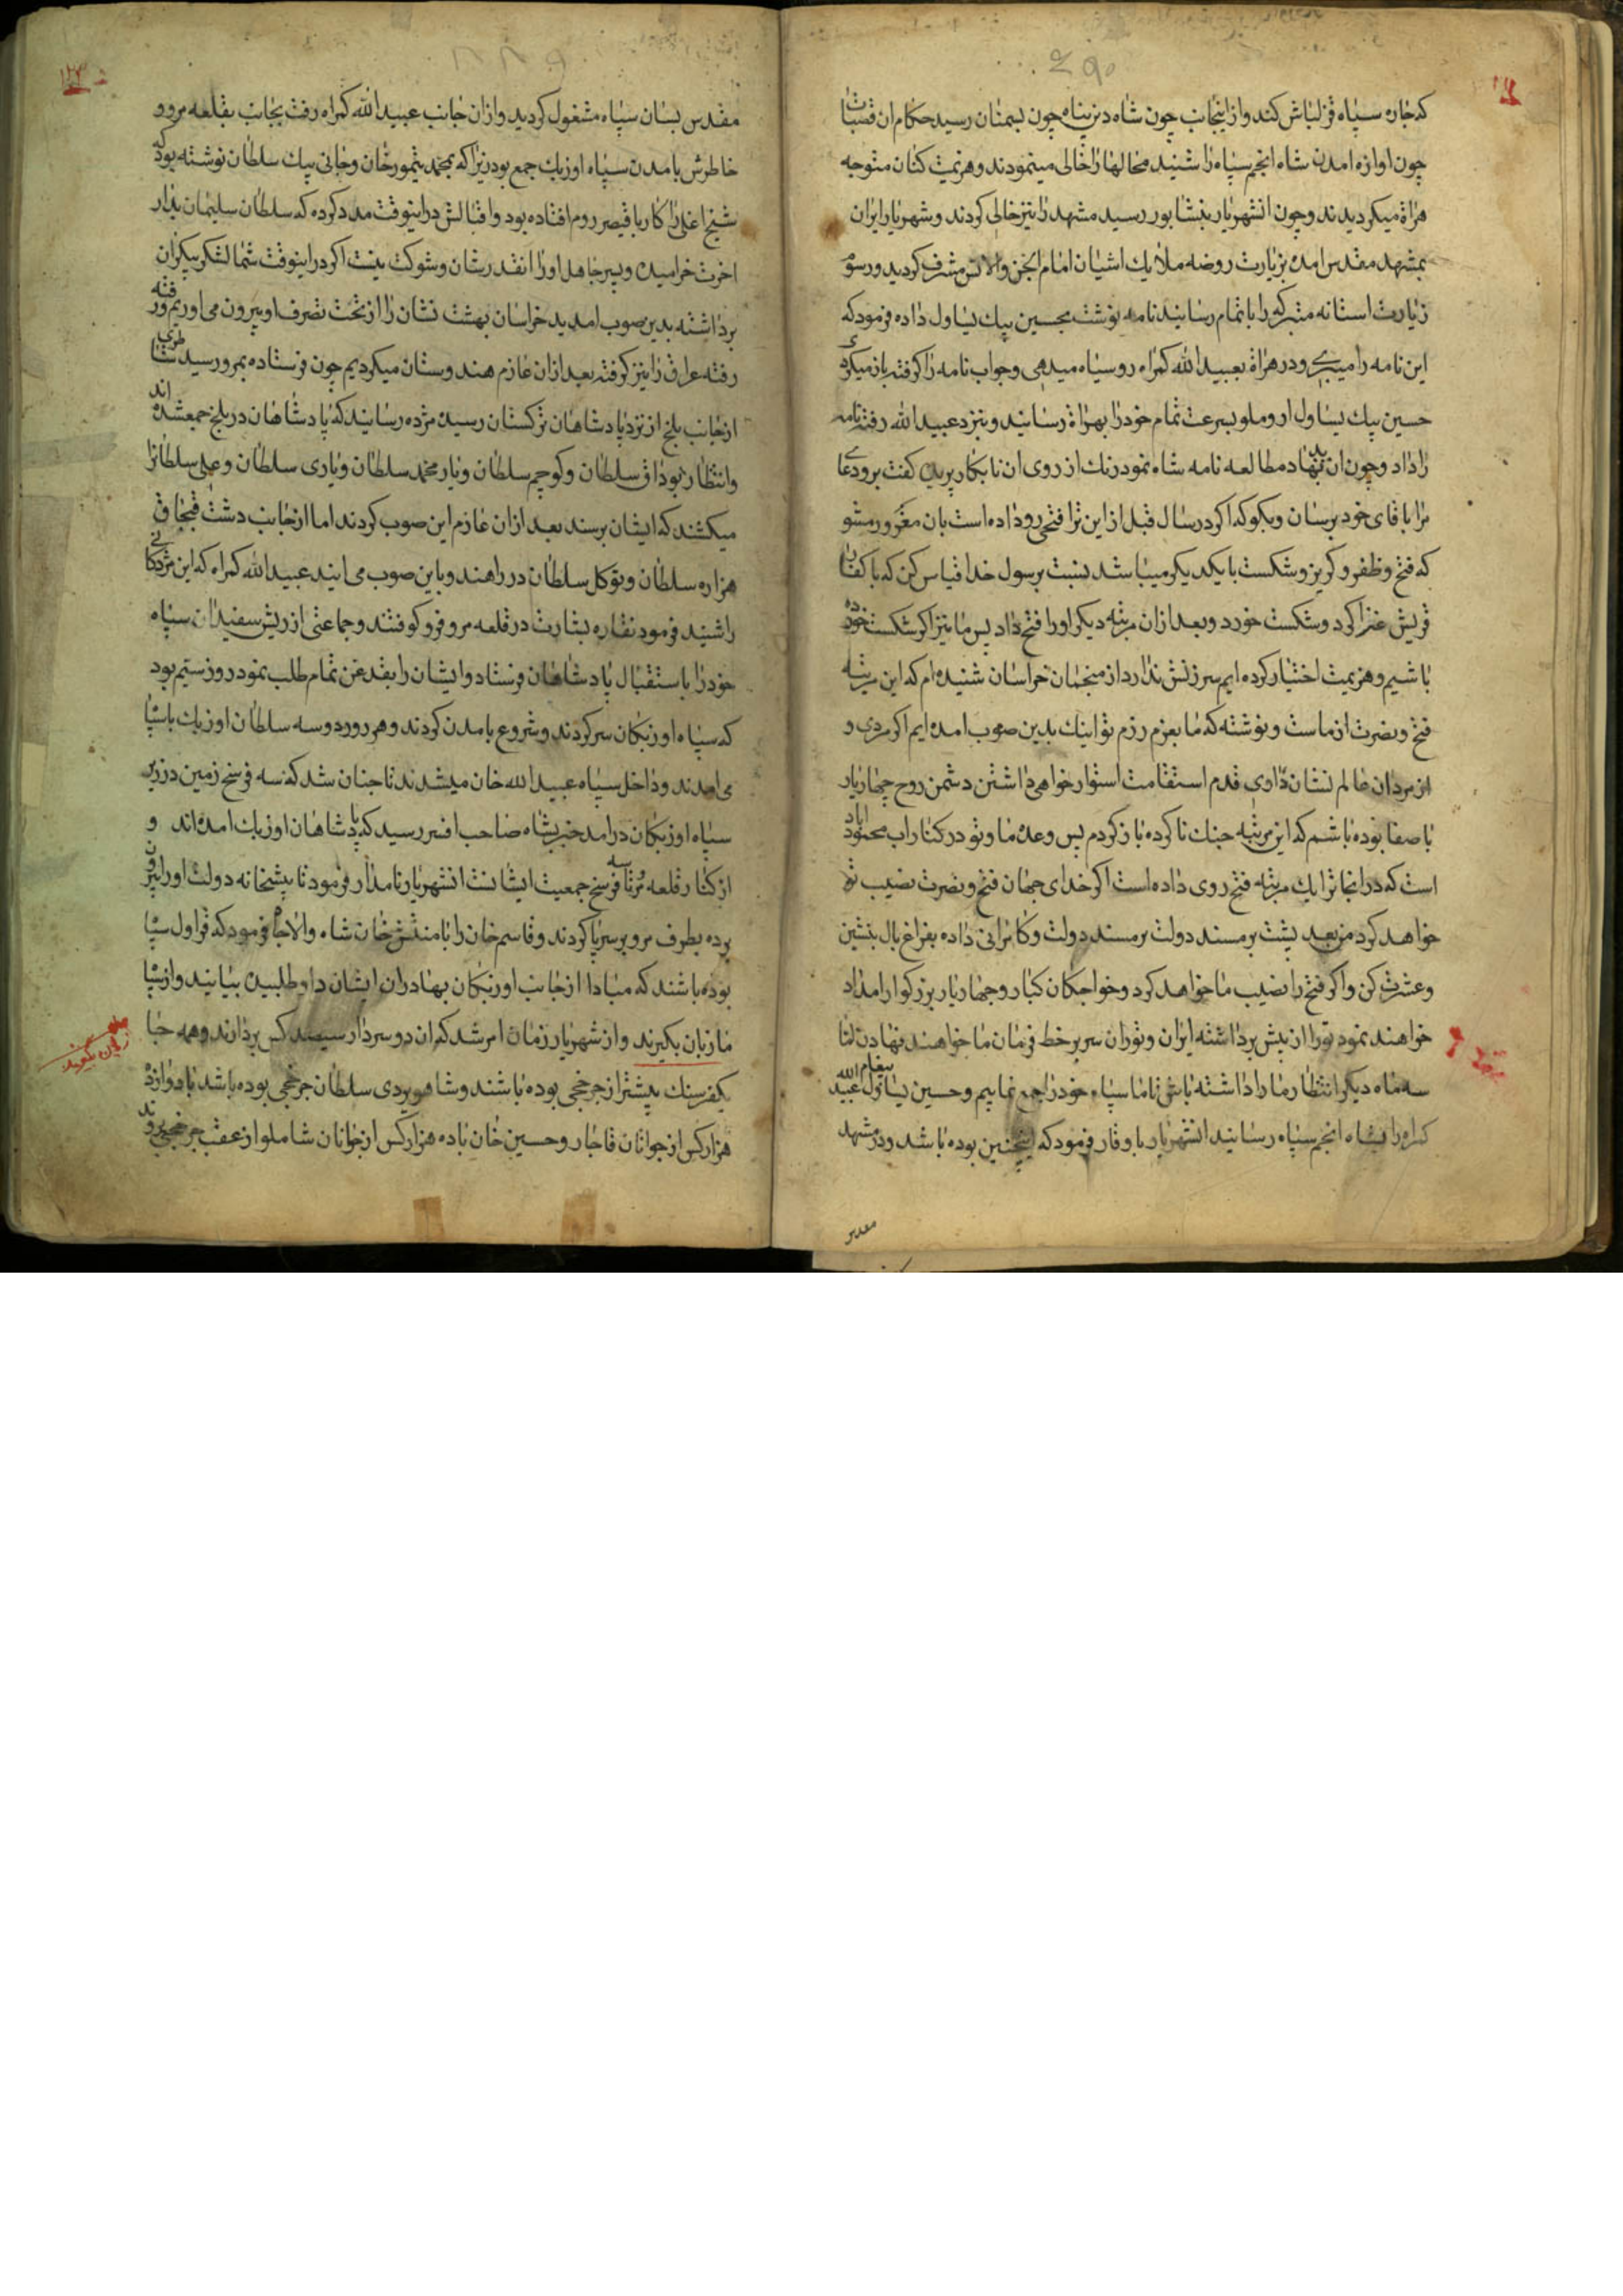 ۶۹۰
که چاره سپاه قزلباش کند و از اینجانب چون شاه دین پناه چون بسمنان رسید حکام ان قصبات
چون اوازه امدن شاه انجم سپاه را شنید محالها را خالی مینمودند و هزیمت کنان متوجه
هراة میکردیدند و چون انشهریار بنشابور رسید مشهد را نیز خالی کردند و شهریار ایران
بمشهد مقدس امده بزیارت روضه ملایك اشیان امام الجن والانس مشرف کردید و رسوم
زیارت استانه متبرکه را باتمام رسانید نامه نوشت بحسین بیك یساول داده فرمود که
این نامه را میبری و در هراة بعبید الله کمراه روسیاه میدهی و جواب نامه را کرفته باز میکردی
حسین بیك یساول اروملو بسرعت تمام خود را بهراة رسانید و بنزد عبید الله رفته نامه
را داد و چون ان بد نهاد مطالعه نامه شاه نمود رنك از روی ان نابکار پرید کفت برو دعا
مرا باقای خود برسان و بکو که اکر در سال قبل از این ترا فتحی رو داده است بان مغرور مشو
که فتح و ظفر و کریز و شکست با یکدیکر میباشد بنسبت برسول خدا قیاس کن که با کفار
قریش غزا کرد و شکست خورد و بعد از ان مرتبه دیکر او را فتح داد پس ما نیز اکر شکست خورده
باشیم و هزیمت اختیار کرده ایم سرزنش ندارد از منجمان خراسان شنیده ام که این مرتبه
فتح و نصرت از ماست و نوشته که ما بعزم رزم تو اینك بدین صوب امده ایم اکر مردی و
از مردان عالم نشان داری قدم استقامت استوار خواهی داشتن دشمن روح چهار یار
با صفا بوده باشم که این مرتبه جنك ناکرده باز کردم پس وعده ما و تو در کنار اب محموداباد
است که در انجا ترا یك مرتبه فتح روی داده است اکر خدای جهان فتح و نصرت نصیب تو
خواهد کرد من بعد پشت بر مسند دولت بر مسند دولت و کامرانی داده بفراغ بال بنشین
و عشرت کن و اکر فتح را نصیب ما خواهد کرد و خواجکان کبار و چهار یار بزرکوار امداد
خواهند نمود تو را از پیش برداشته ایران و توران سر بر خط فرمان ما خواهند نهادن تا
سه ماه دیکر انتظار ما را داشته باش تا ما سپاه خود را جمع نماییم و حسین یساول پیغام عبید الله
کمراه را بشاه انجم سپاه رسانید انشهریار با وقار فرمود که اینچنین بوده باشد و در مشهد
مقدس
مقدس بسان سپاه مشغول کردید و از ان جانب عبید الله کمراه رفت بجانب بقلعه مرو و
خاطرش بامدن سپاه اوزبك جمع بود زیرا که بمحمد تیمور خان و جانی بیك سلطان نوشته بود که
شیخ اغلی را کار با قیصر روم افتاده بود و اقبالش در اینوقت مدد کرده که سلطان سلیمان بدار
اخرت خرامیده و پسر جاهل او را انقدر شان و شوکت نیست اکر در اینوقت شما لشکر بیکران
برداشته بدین صوب امدید خراسان بهشت نشان را از تحت تصرف او بیرون می اوریم و رفته
رفته عراق را نیز کرفته بعد از ان عازم هندوستان میکردیم چون فرستاده بمرو رسید شاطری
از جانب بلخ از نزد پادشاهان ترکستان رسیده مژده رسانید که پادشاهان در بلخ جمع شده اند
و انتظار بوداق سلطان و کوچم سلطان و یار محمد سلطان و یاری سلطان و علی سلطانرا
میکشند که ایشان برسند بعد از ان عازم این صوب کردند اما از جانب دشت قبچاق
هزاره سلطان و توکل سلطان در راهند و باین صوب می ایند عبید الله کمراه که این مژدکانی
را شنید فرمود نقاره بشارت در قلعه مرو فرو کوفتند و جماعتی از ریش سفیدان سپاه
خود را باستقبال پادشاهان فرستاد و ایشان را بقدغن تمام طلب نمود روز ستیم بود
که سپاه اوزبکان سر کردند و شروع بامدن کردند و هر روز دو سه سلطان اوزبك با سپاه
می امدند و داخل سپاه عبید الله خان میشدند تا چنان شد که سه فرسخ زمین در زیر
سپاه اوزبکان درامد خبر بشاه صاحب افسر رسید که پادشاهان اوزبك امده اند و
از کنار قلعه مرو تا سه فرسخ جمعیت ایشانست انشهریار نامدار فرمود تا پیشخانه دولت او را بیرون
برده بطرف مرو بر سر پا کردند و قاسم خان را با منتش خان شاه والاجاه فرمود که قراول سپاه
بوده باشند که مبادا از جانب اوزبکان بهادران ایشان داوطلبیده بیایند و از سپاه
ما زبان بکیرند و از شهریار زمان امر شد که ان دو سردار سیصد کس بردارند و همه جا
یکفرسنك پیشتر از چرخچی بوده باشند و شاهویردی سلطان چرخچی بوده باشد با دوازده
هزار کس از جوانان قاجار و حسین خان با ده هزار کس از جوانان شاملو از عقب چرخچی روند
زبان بکیرند